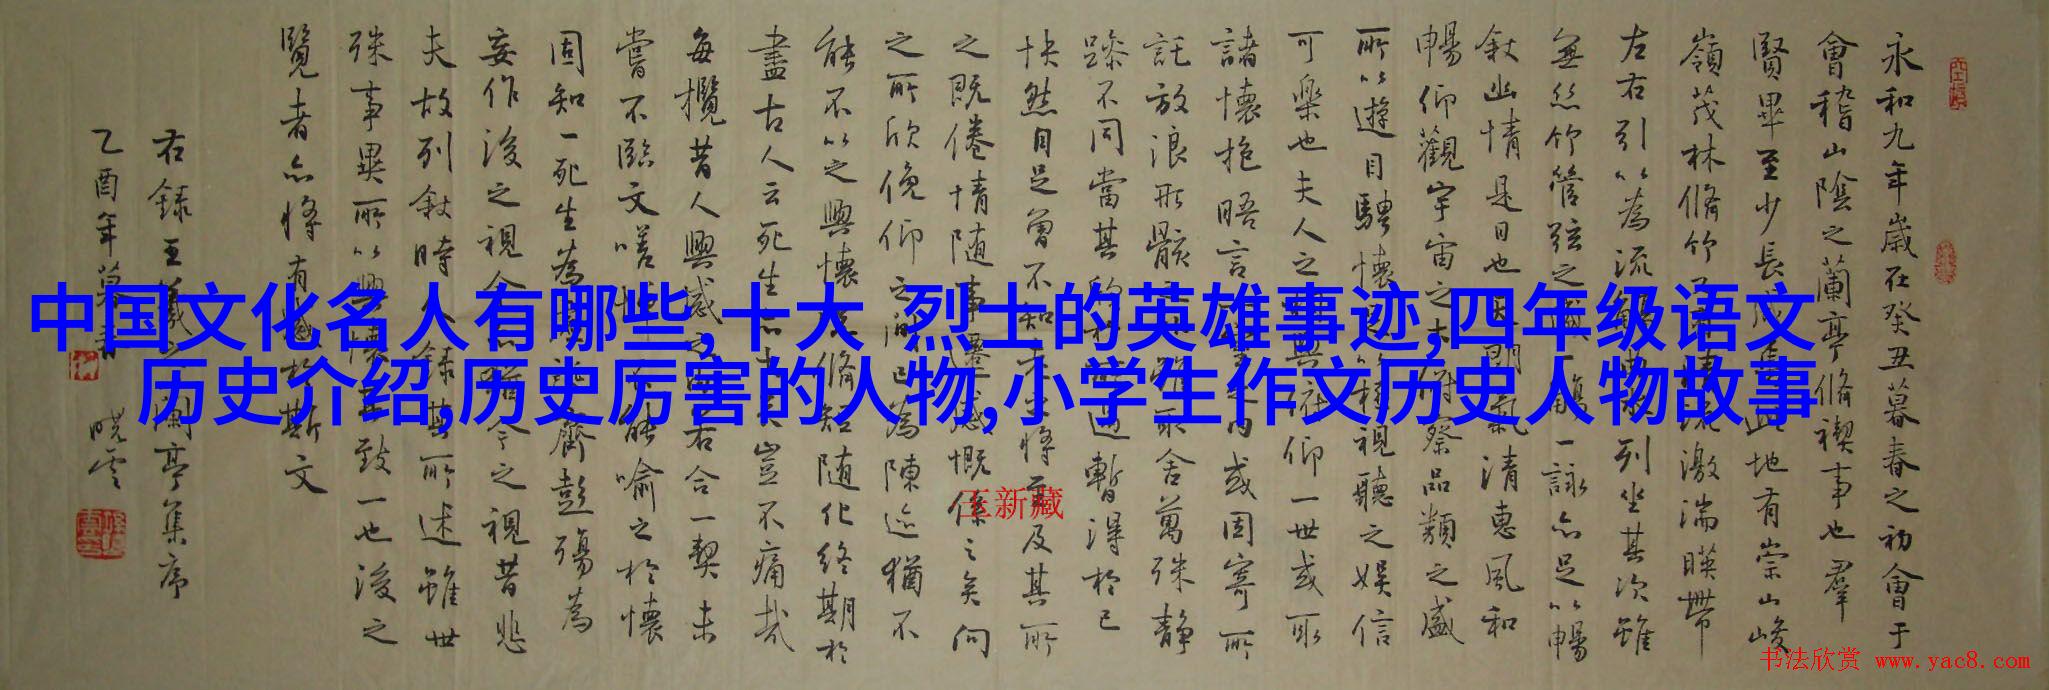 中国文化名人有哪些,十大 烈士的英雄事迹,四年级语文
历史介绍,历史厉害的人物,小学生作文历史人物故事
永和九年歲在癸丑暮春之初會于
會稽山陰之蘭亭脩禊事也羣
賢畢至少長此地有崇山峻
嶺茂林脩竹激湍暎帶
左右引以為流列坐其次雖
無絲竹管弦之一詠亦足以暢
敘幽情是日也氣清惠風和
暢仰觀宇宙之察品類之盛
所以遊目騁懷視聽之娛信
可樂也夫人之仰一世或取
諸懷抱晤言內或因寄所
託放浪形骸取舍萬殊靜
躁不同當其暫得於己
快然自足曾不知將至及其所
之既倦情随事感慨係之矣向
之所欣俛仰之已為陳迹猶不
能不以之興懷脩随化終期於
盡古人云死生豈不痛哉
每攬昔人興感之若合一契未
嘗不臨文嗟能喻之於懷
固知一死生為齊彭殤為
妄作後之視今今之視昔悲
夫故列敘時人錄其所述雖世
殊事異所以興懷致一也後之
覽者亦將有於斯文
右錄王羲之蘭亭集序
乙酉年暮春
曉雲
王新藏
书法欣赏 www.yac8.com